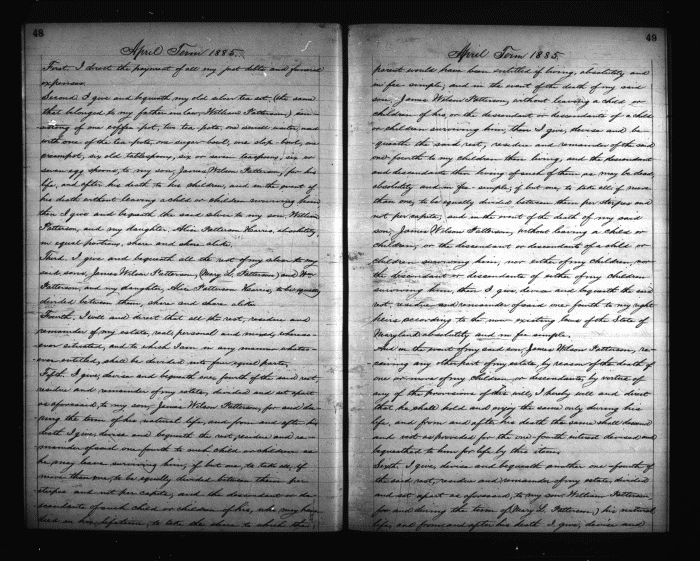 48
April Term 1885.
First. I direct the payment of all my just debts and funeral
expenses.
Second. I give and bequeath my old silver tea set (the same
that belonged to my father in law William Patterson) con-
sisting of one coffee pot, two tea pots, one small waiter, used
with one of the tea pots, one sugar bowl, one slop bowl, one
creampot, six old tablespoons, six or seven teaspoons, six or
seven egg spoons, to my son, James Wilson Patterson, for his
life, and after his death to his children, and in the event of
his death without leaving a child or children surviving him
then I give and bequeath the said silver to my son, William
Patterson, and my daughter, Alice Patterson Harris, absolutely,
in equal portions, share and share alike.
Third. I give and bequeath all the rest of my silver to my
said sons, James Wilson Patterson, (Mary L. Patterson) and Wm
Patterson, and my daughter, Alice Patterson Harris, to be equally
divided between them, share and share alike.
Fourth. I will and direct that all the rest, residue and
remainder of my estate, real personal and mixed, whereso-
ever situated, and to which I am in any manner whatso-
ever entitled, shall be divided into four equal parts.
Fifth. I give, devise and bequeath one fourth of the said rest,
residue and remainder of my estate, divided and set apart
as aforesaid, to my son, James Wilson Patterson, for and du-
ring the term of his natural life, and from and after his
death I give, devise and bequeath the rest, residue and re-
mainder of said one fourth to such child or children as
he may leave surviving him, if but one, to take all, if
more than one, to be equally divided between them per
stirpes and not per capita; and the descendant or de-
scendants of such child or children of his, who may have
died in his lifetime, to take the share to which the
49
April Term 1885.
parent would have been entitled if living, absolutely and
in fee simple; and in the event of the death of my said
son, James Wilson Patterson, without leaving a child or
children of his, or the descendant or descendants of a child
or children surviving him, then I give, devise and be-
queath the said rest, residue and remainder of the said
one fourth to my children then living, and the descendant
and descendants then living of such of them as may be dead,
absolutely and in fee simple, if but one, to take all, if more
than one, to be equally divided between them per stirpes and
not per capita; and in the event of the death of my said
son, James Wilson Patterson, without leaving a child or
children, or the descendant or descendants of a child or
children surviving him, nor either of my children, nor
the descendant or descendants of either of my children
surviving him, then I give, devise and bequeath the said
rest, residue and remainder of said one fourth to my right
heirs according to the now existing laws of the State of
Maryland absolutely and in fee simple.
And in the event of my said son, James Wilson Patterson, re-
ceiving any other part of my estate, by reason of the death of
one or more of my children, or descendants, by virtue of
any of the provisions of this will, I hereby will and direct
that he shall hold and enjoy the same only during his
life, and from and after his death the same shall descend
and vest as provided for the one fourth interest devised and
bequeathed to him for life by this item.
Sixth. I give, devise and bequeath another one fourth of
the said rest, residue and remainder of my estate, divided
and set apart as aforesaid, to my son William Patterson,
for and during the term of (Mary L. Patterson) his natural
life, and from and after his death I give, devise and